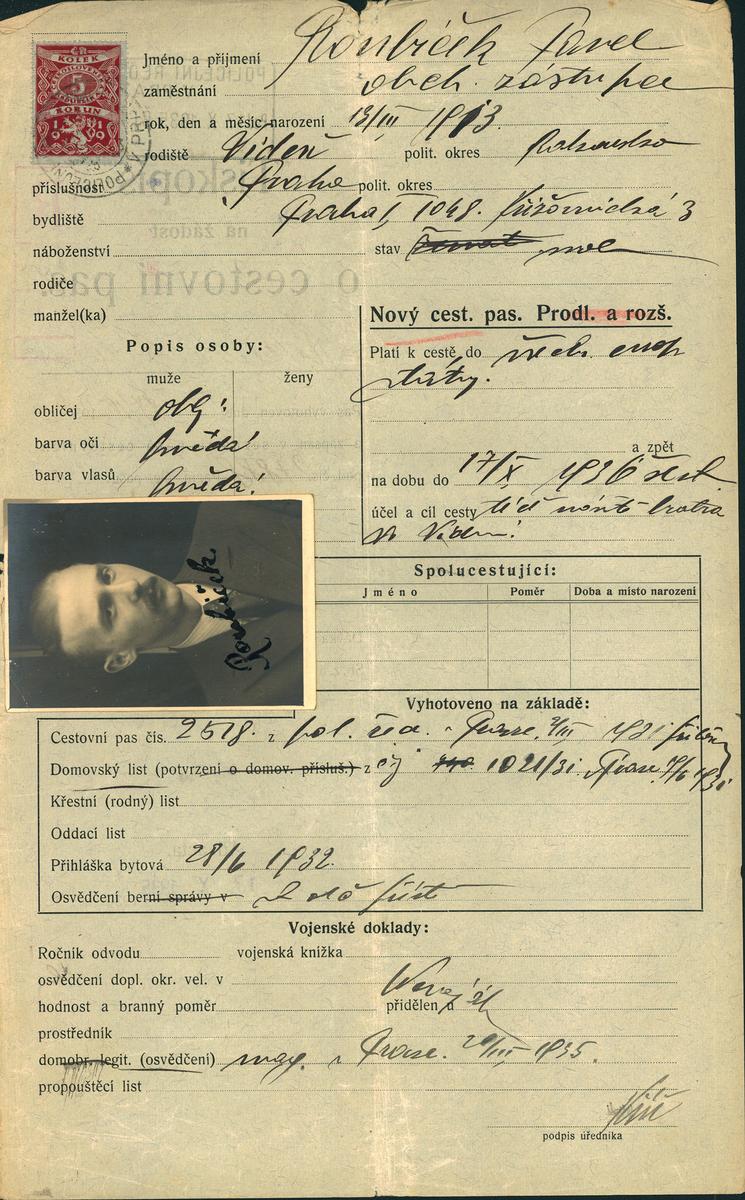 ČR
KOLEK
5
KORUN
Jméno a příjmení Roubíček Pavel
zaměstnání obch. zástupce
rok, den a měsíc narození 13/III 1913
rodiště Vídeň polit. okres Rakousko
příslušnost Praha polit. okres
bydliště Praha I, 1048. Křižovnická 3
náboženství stav
rodiče
manžel(ka)
Nový cest. pas. Prodl. a rozš.
Popis osoby:
muže ženy
obličej obl:
barva očí hnědá
barva vlasů hnědá
Platí k cestě do všech. evrop
státy.
a zpět
na dobu do 17/X 1936
účel a cíl cesty bratra
Roubíček
Spolucestující:
Jméno Poměr Doba a místo narození
Vyhotoveno na základě:
Cestovní pas čís. 2518. z pol. řed. v Praze. 1931
Domovský list (potvrzení o domov. přísluš.) z čj 1021/31 Praze
Křestní (rodný) list
Oddací list
Přihláška bytová 28/6 1932.
Osvědčení berní správy v
Vojenské doklady:
Ročník odvodu vojenská knížka
osvědčení dopl. okr. vel. v
hodnost a branný poměr přidělen u
prostředník
domobr. legit. (osvědčení) mag. v Praze. 20/III 1935.
propouštěcí list
podpis úředníka